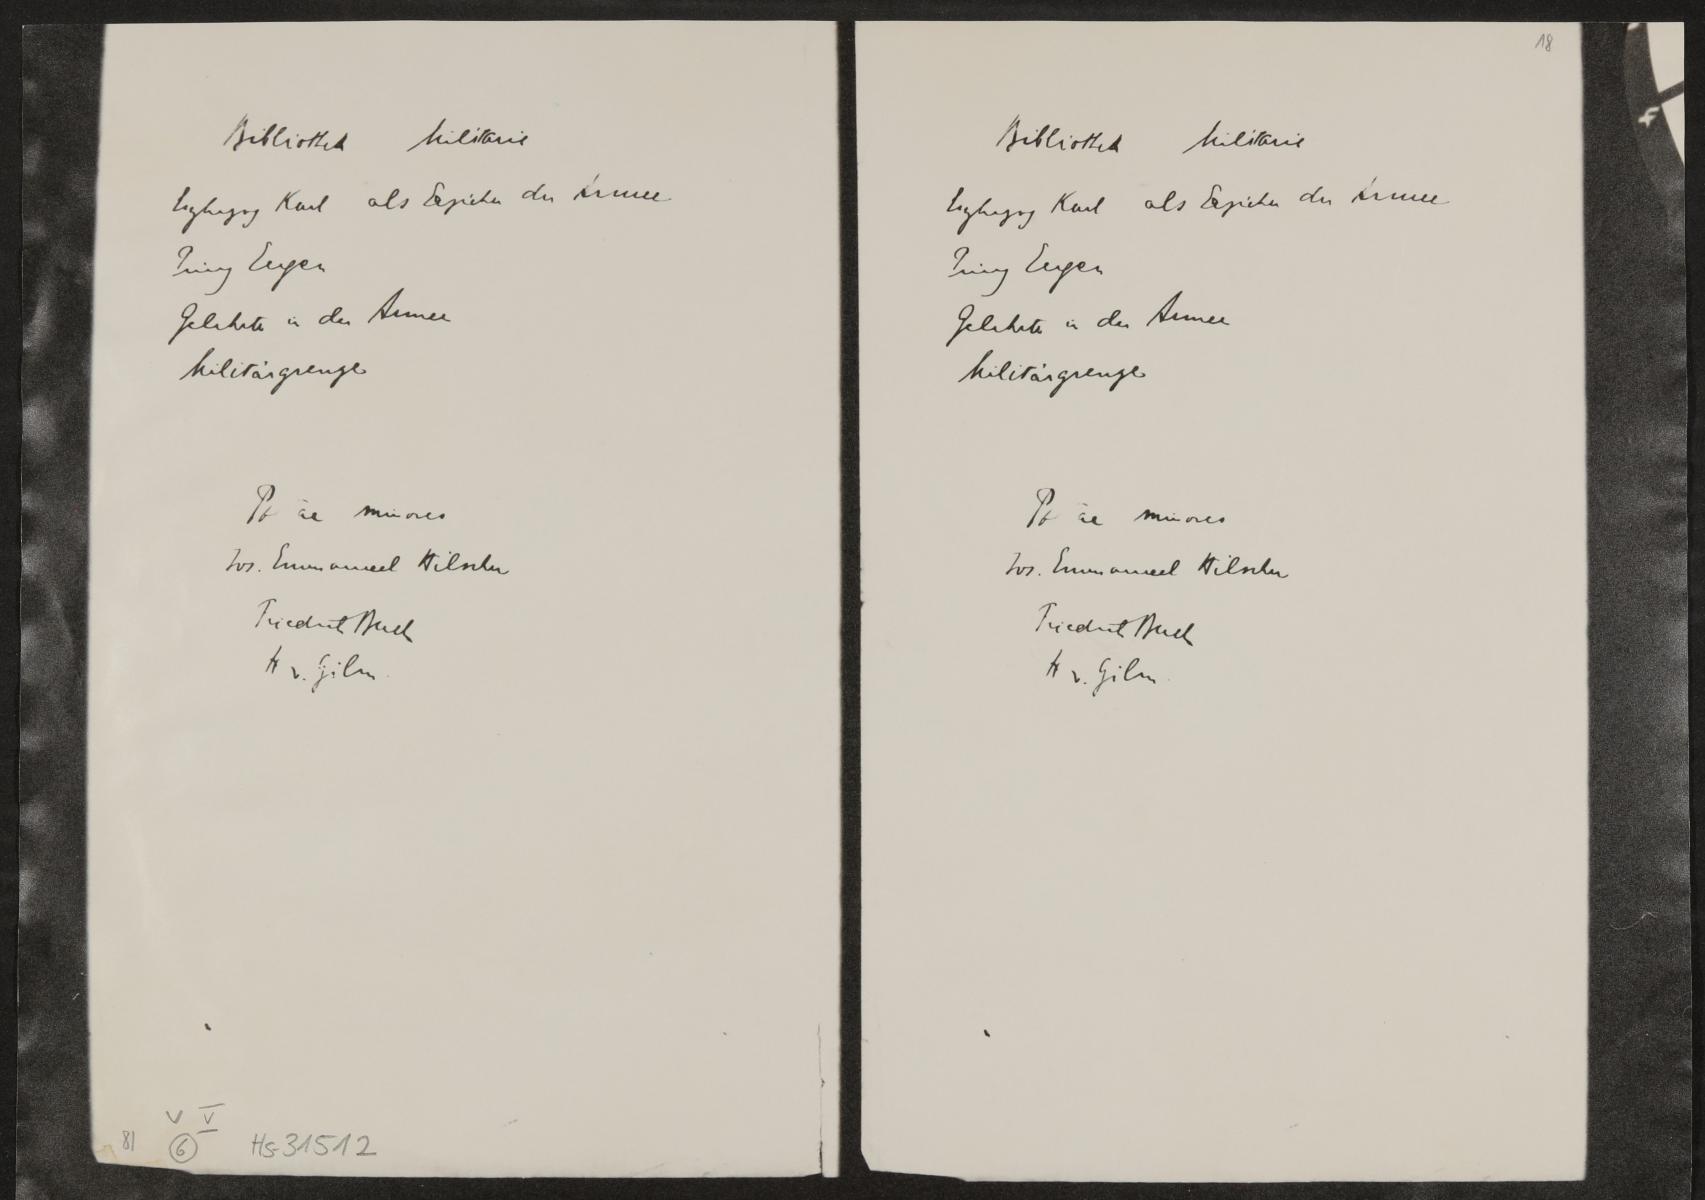 Bibliothek Militaria
Erzherzog Karl als Erzieher der Armee
Prinz Eugen
Gelehrte in der Armee
Militärgrenze
Poetae minores
Jos. Emmanuel Hilscher
Friedrich Bach
H v. Gilm
81
V V
6
Hs-31512
18
Bibliothek Militaria
Erzherzog Karl als Erzieher der Armee
Prinz Eugen
Gelehrte in der Armee
Militärgrenze
Poetae minores
Jos. Emmanuel Hilscher
Friedrich Bach
H v. Gilm